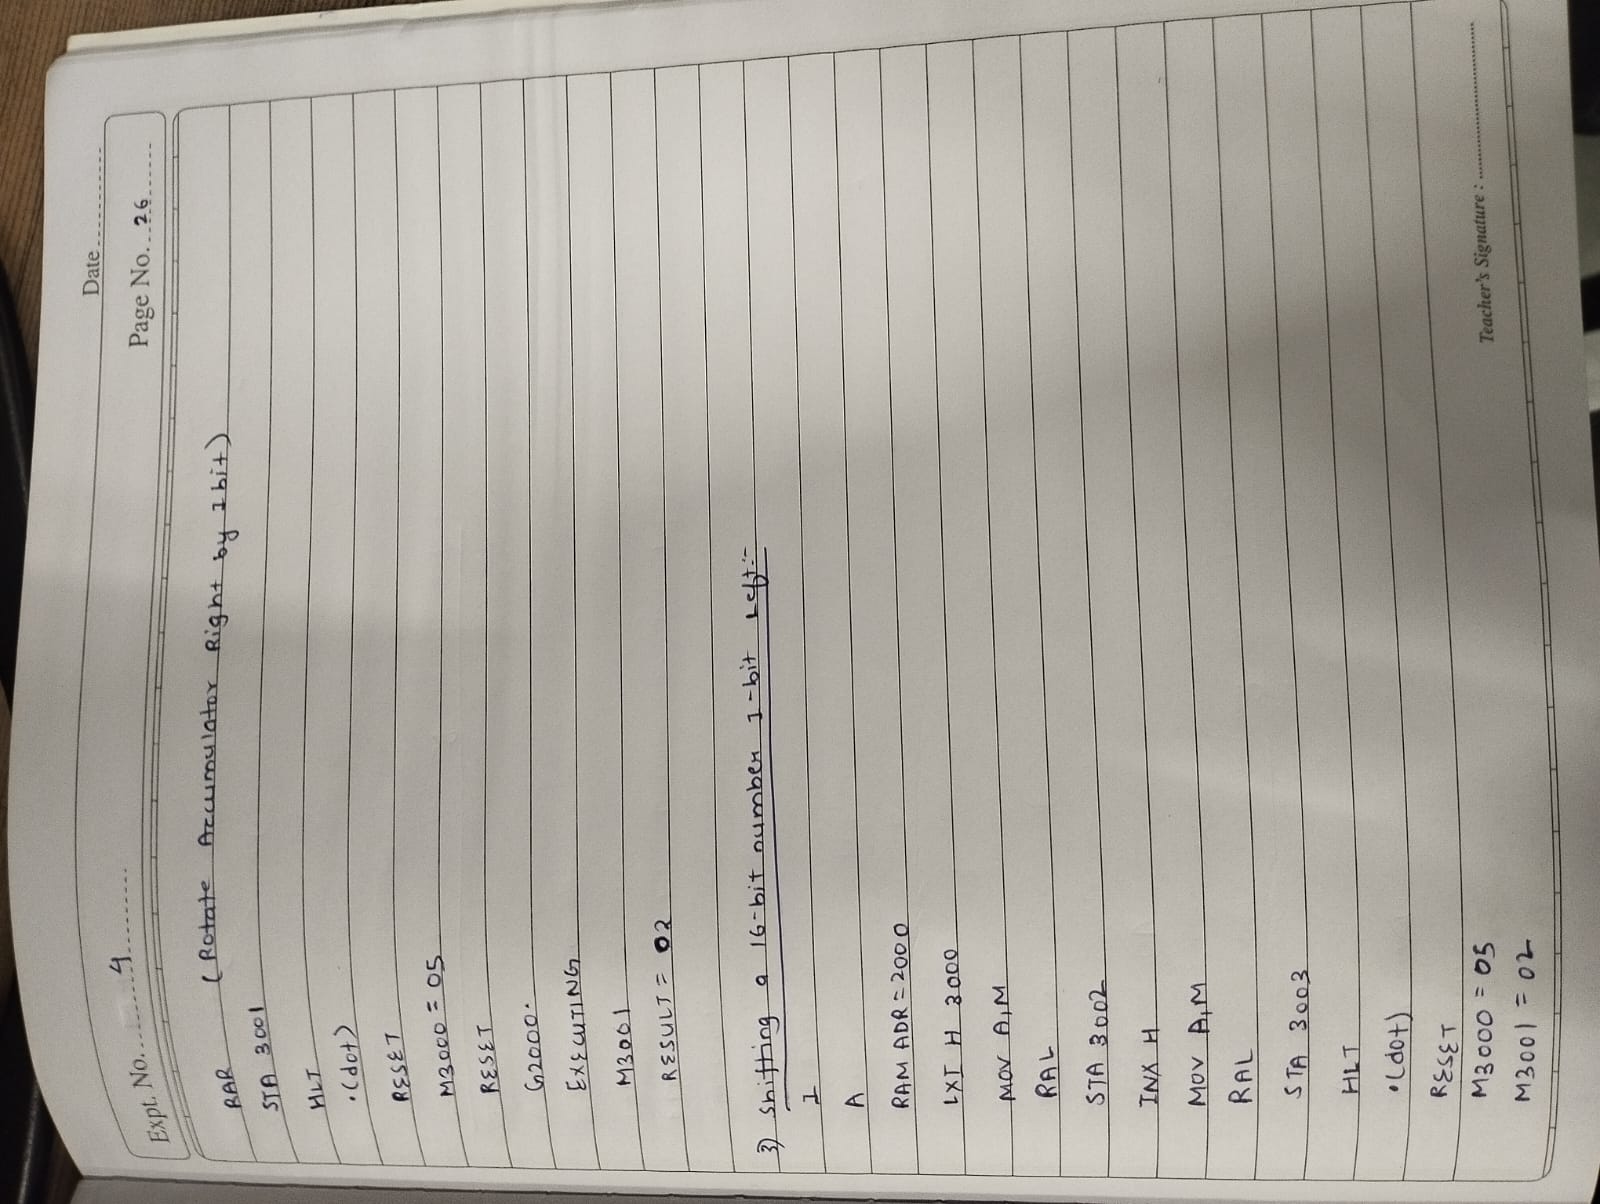 Date
Expt. No. 4
Page No. 26
RAR (Rotate Accumulator Right by 1 bit)
STA 3001
HLT
.(dot)
RESET
M3000 = 05
RESET
G2000.
EXECUTING
M3001
RESULT = 02
3) Shifting a 16-bit number 1-bit Left:-
I
A
RAM ADR = 2000
LXI H 3000
MOV A,M
RAL
STA 3002
INX H
MOV A,M
RAL
STA 3003
HLT
.(dot)
RESET
M3000 = 05
M3001 = 02
Teacher's Signature :